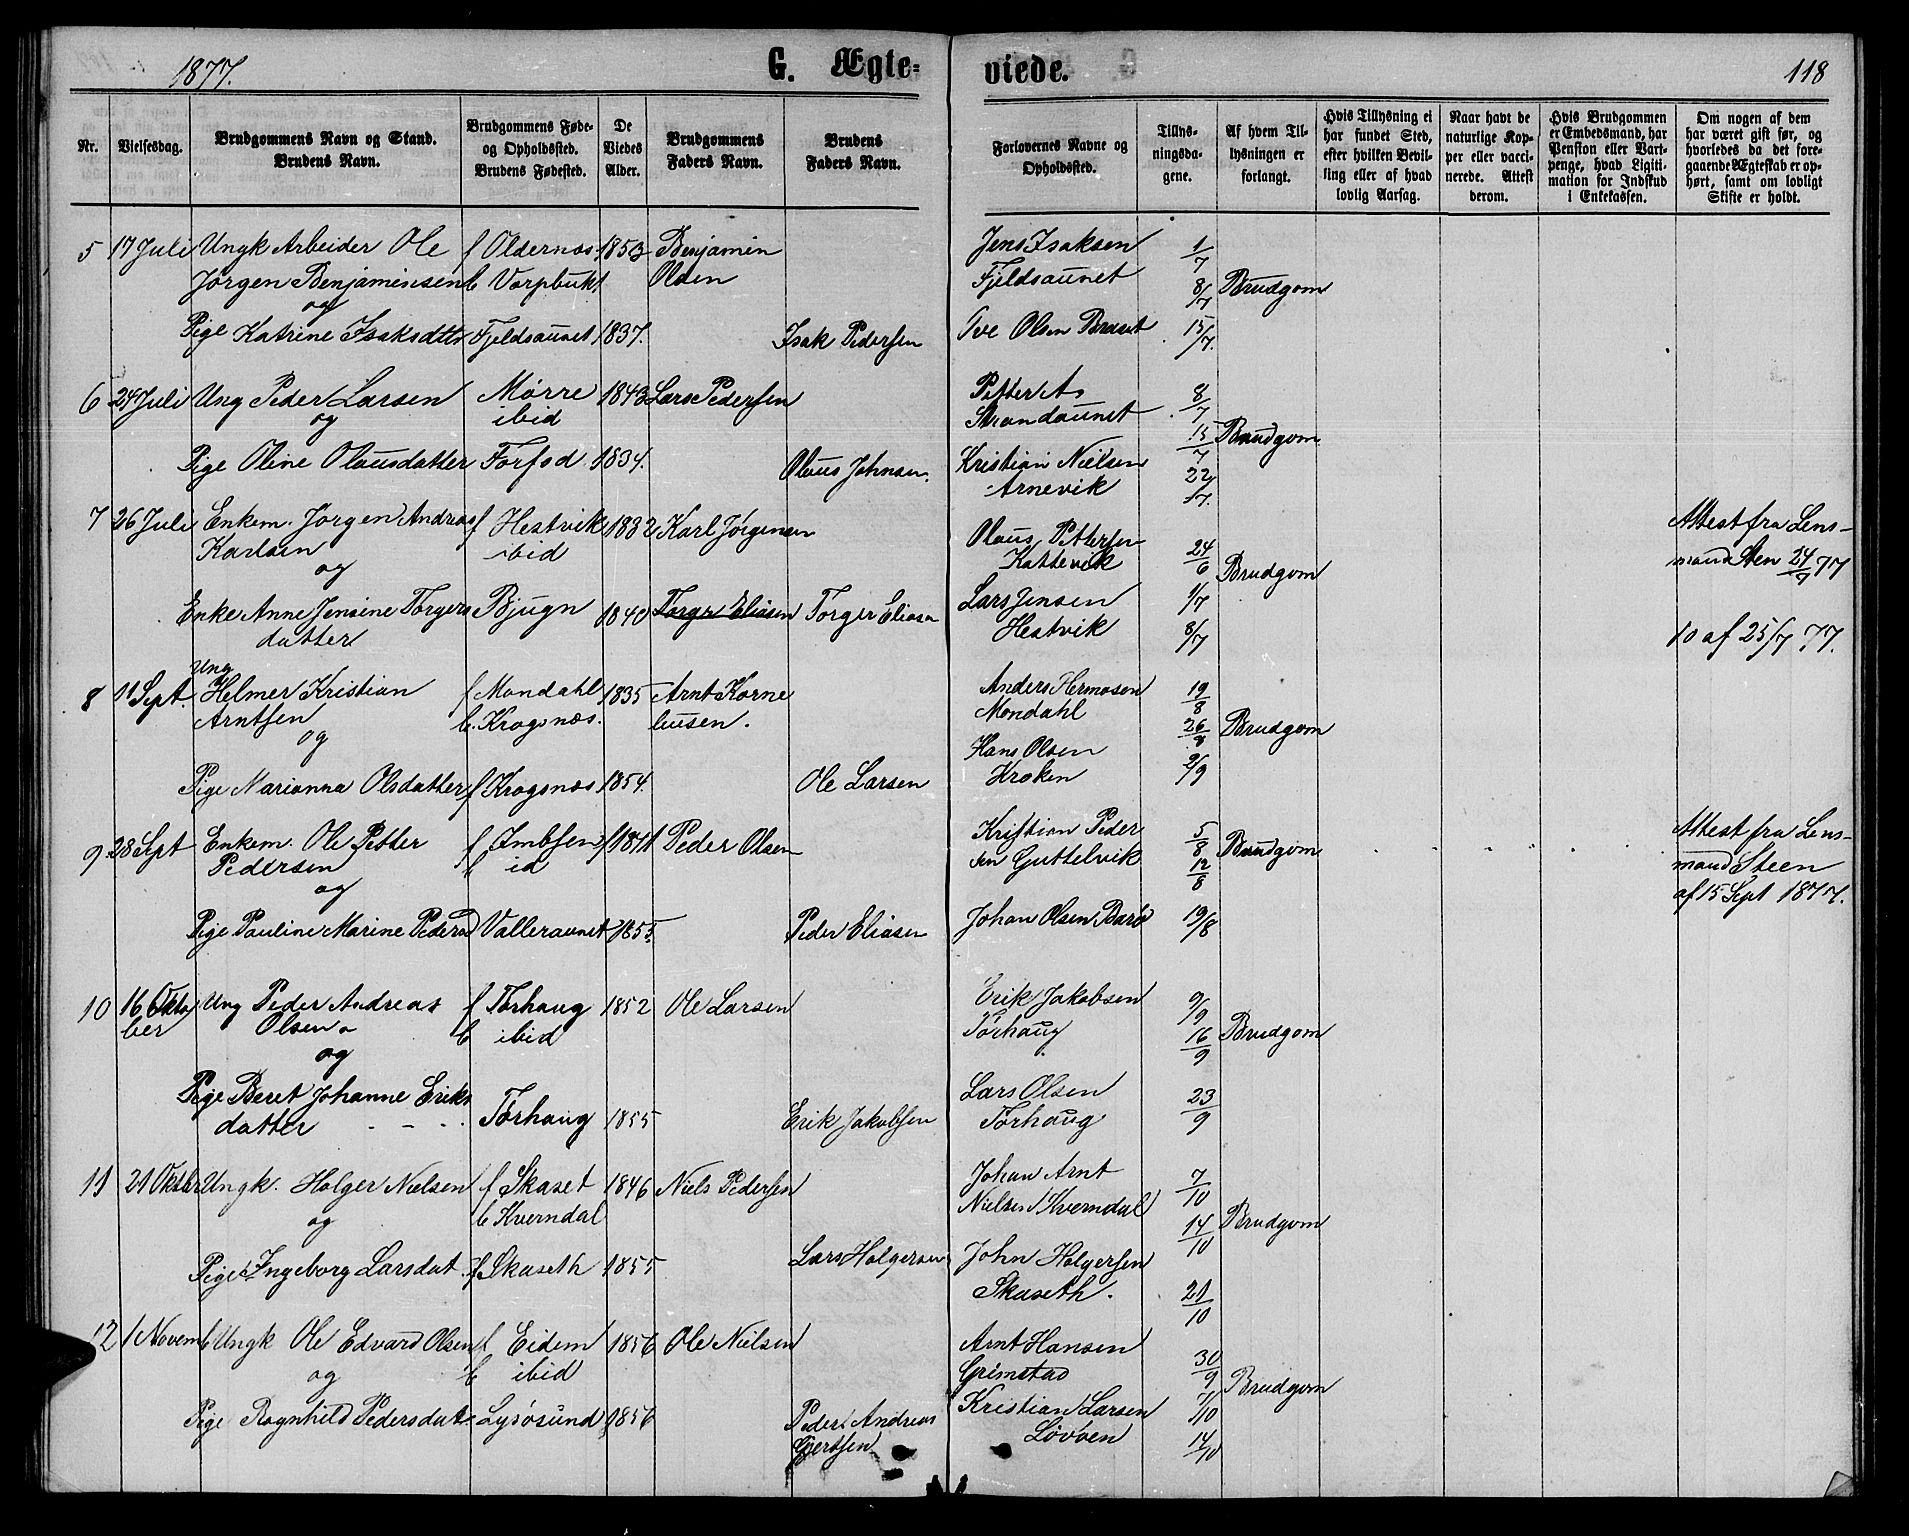 1877.
G. Ægte-
viede.
118
Nr.
Vielsesdag.
Brudgommens Navn og Stand.
Brudens Navn.
Brudgommens Føde-
og Opholdssted.
Brudens Fødested.
De
Viedes
Alder.
Brudgommens
Faders Navn.
Brudens
Faders Navn.
Forlovernes Navne og
Opholdssted.
Tillys-
ningsda-
gene.
Af hvem Til-
lysningen er
forlangt.
Hvis Tillysning ei
har fundet Sted,
efter hvilken Bevil-
ling eller af hvad
lovlig Aarsag.
Naar havt de
naturlige Kop-
per eller vacci-
nerede. Attest
derom.
Hvis Brudgommen
er Embedsmand, har
Pension eller Vart-
penge, hvad Ligiti-
mation for Indskud
i Enkekassen.
Om nogen af dem
har været gift før, og
hvorledes da det fore-
gaaende Ægteskab er op-
hørt, samt om lovligt
Skifte er holdt.
5 17 Juli Ungk Arbeider Ole f Oldernæs 1853 Benjamin Jens Isaksen 1/7
Jørgen Benjaminsen b Vorpbukt Olsen Fjeldsaunet 8/7 Brudgom
og
Pige Katrine Isaksdtter Fjeldsaunet 1837. Isak Pedersen Ole Olsen 15/7.
6 24 Juli Ung Peder Larsen Mørre 1843 Lars Pedersen Petter A. 8/7
og ibid Strandaunet 15/7 Brudgom
Pige Oline Olausdatter Forfod 1834. Olaus Johnsen. Kristian Nielsen 22/7.
Arnevik
7 26 Juli Enkem. Jørgen Andreas f Hestvik 1832 Karl Jørgensen Olaus Pettersen Attest fra Lens-
Karlsen ibid Kattevik 24/6 Brudgom mand Sten 24/7 77
og
Enke Anne Jensine Torgers Bjugn 1840 Torger Eliasen Torger Eliasen Lars Jensen 1/7
datter Hestvik 8/7 10 af 25/7 77.
8 11 Sept. Ung Helmer Kristian f Mondahl 1835 Arnt Korne Anders Hermosen 19/8
Arntsen b. Krogsnæs. liusen. Mondahl 26/8 Brudgom
og Hans Olsen
Pige Marianna Olsdatter f Krogsnæs 1854. Ole Larsen Kroken 2/9
9 28 Sept Enkem. Ole Petter f Peder Olsen Kristian Peder 5/8 Brudgom Attest fra Lens-
Pedersen b id sen Guttelvik 12/8 mand Steen
og af 15 Sept 1877.
Pige Pauline Marine Pedersd Valleraunet 1855. Peder Eliasen Johan Olsen 19/8
10 16 Okto Ung Peder Andreas f Tørhaug 1852 Ole Larsen Erik Jakobsen 9/9
ber Olsen b ibid Tørhaug 16/9 Brudgom
og
Pige Beret Johanne Eriks Lars Olsen 23/9
datter Tørhaug 1855 Erik Jakobsen Tørhaug
11 21 Oktbr Ungk. Holger Nielsen f Skaset 1846 Niels Pedersen Johan Arnt 7/10
og b Kverndal Nielsen Kverndal 14/10 Brudgom
Pige Ingeborg Larsdat. f Skaseth 1855 Lars Holgersen John Holgersen
Skaseth. 21/10
12 1 Novemb Ungk Ole Edvard Olsen f Eidem 1856 Ole Nielsen Arnt Hansen 30/9
og b ibid Grimstad 7/10 Brudgom
Pige Ragnhild Pedersdat. Lysøsund 1856 Peder Andreas Kristian Larsen
Gjertsen Løvøen 14/10